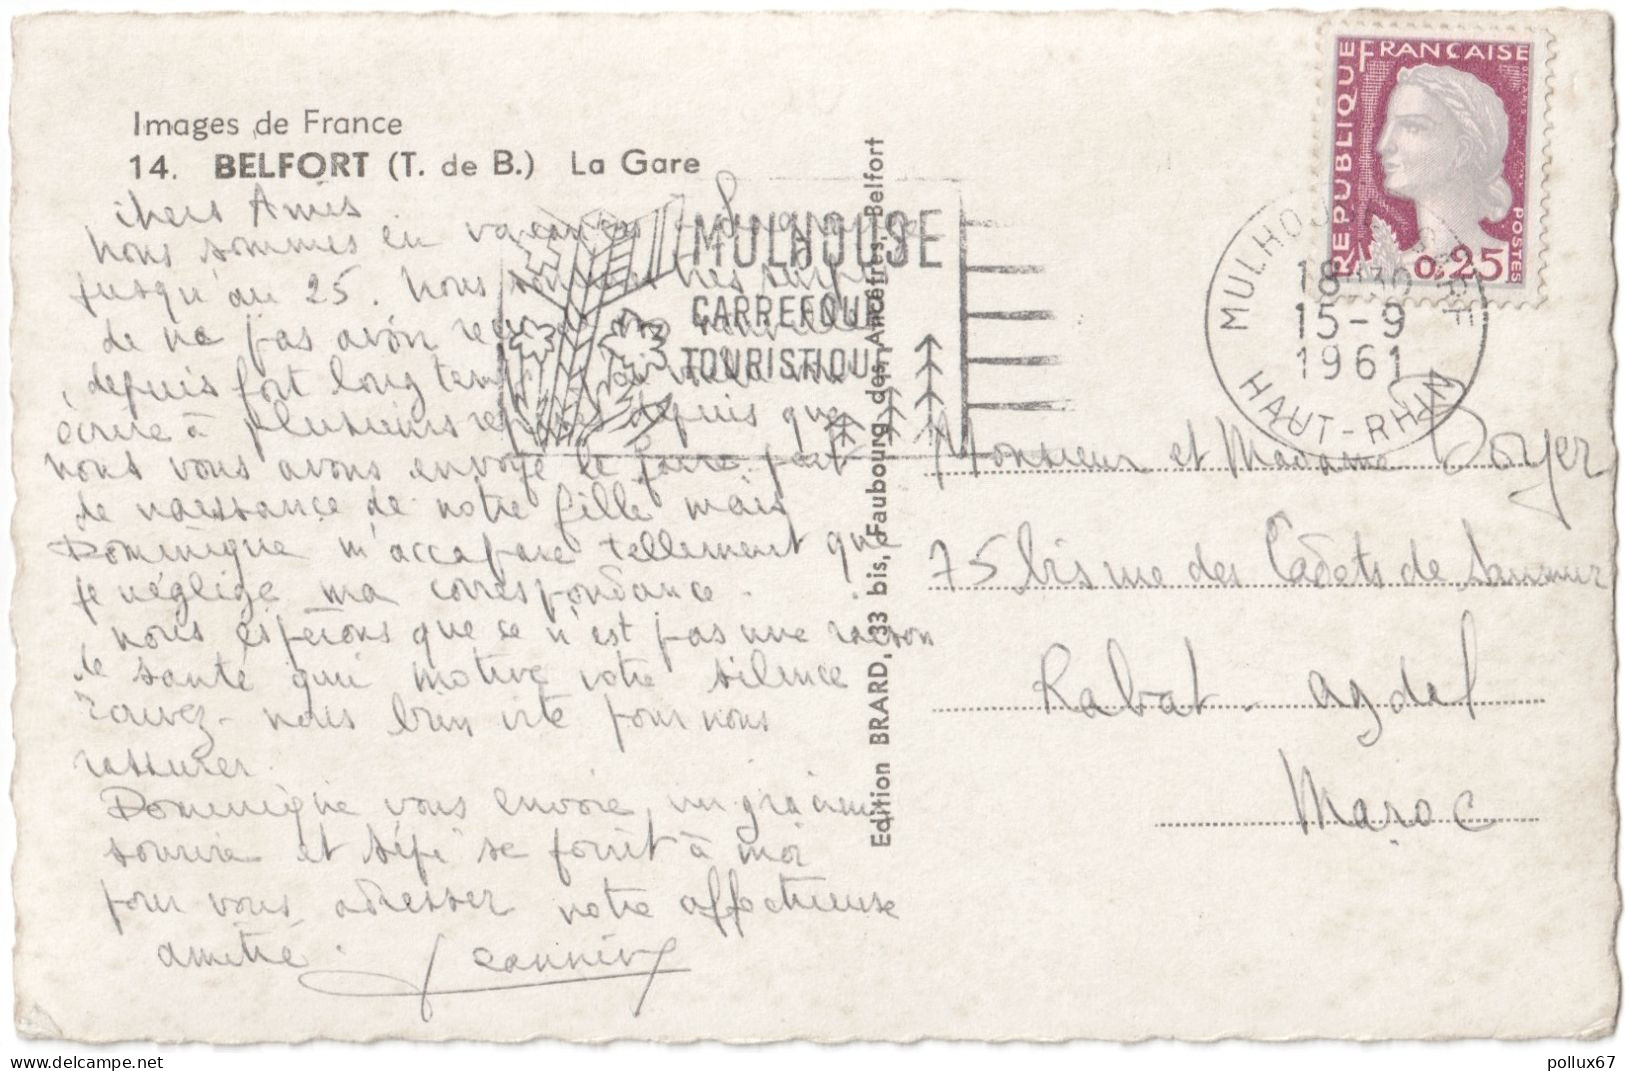 Images de France
14. BELFORT (T. de B.) La Gare
chers Amis
Nous sommes en vacances à
jusqu'au 25. Nous sommes très surpris
de ne pas avoir reçu de nouvelles
depuis fort long temps
écrire à plusieurs reprises depuis que
nous vous avons envoyé le faire part
de naissance de notre fille mais
Dominique m'accapare tellement que
je néglige ma correspondance.
nous espérons que ce n'est pas une raison
de santé qui motive votre silence
nous bien vite pour nous
rassurer.
Dominique vous envoie un gracieux
sourire et se joint à moi
pour vous adresser notre affectueuse
amitié.
Jeannine
Edition BRARD, 33 bis, Faubourg des Ancêtres, Belfort
MULHOUSE
CARREFOUR
TOURISTIQUE
RÉPUBLIQUE FRANÇAISE
0,25
POSTES
MULHOUSE GARE
18H30
15-9
1961
HAUT-RHIN
Monsieur et Madame Doyer
75 bis rue des Cadets de Saumur
Rabat. Agdal
Maroc
pollux67